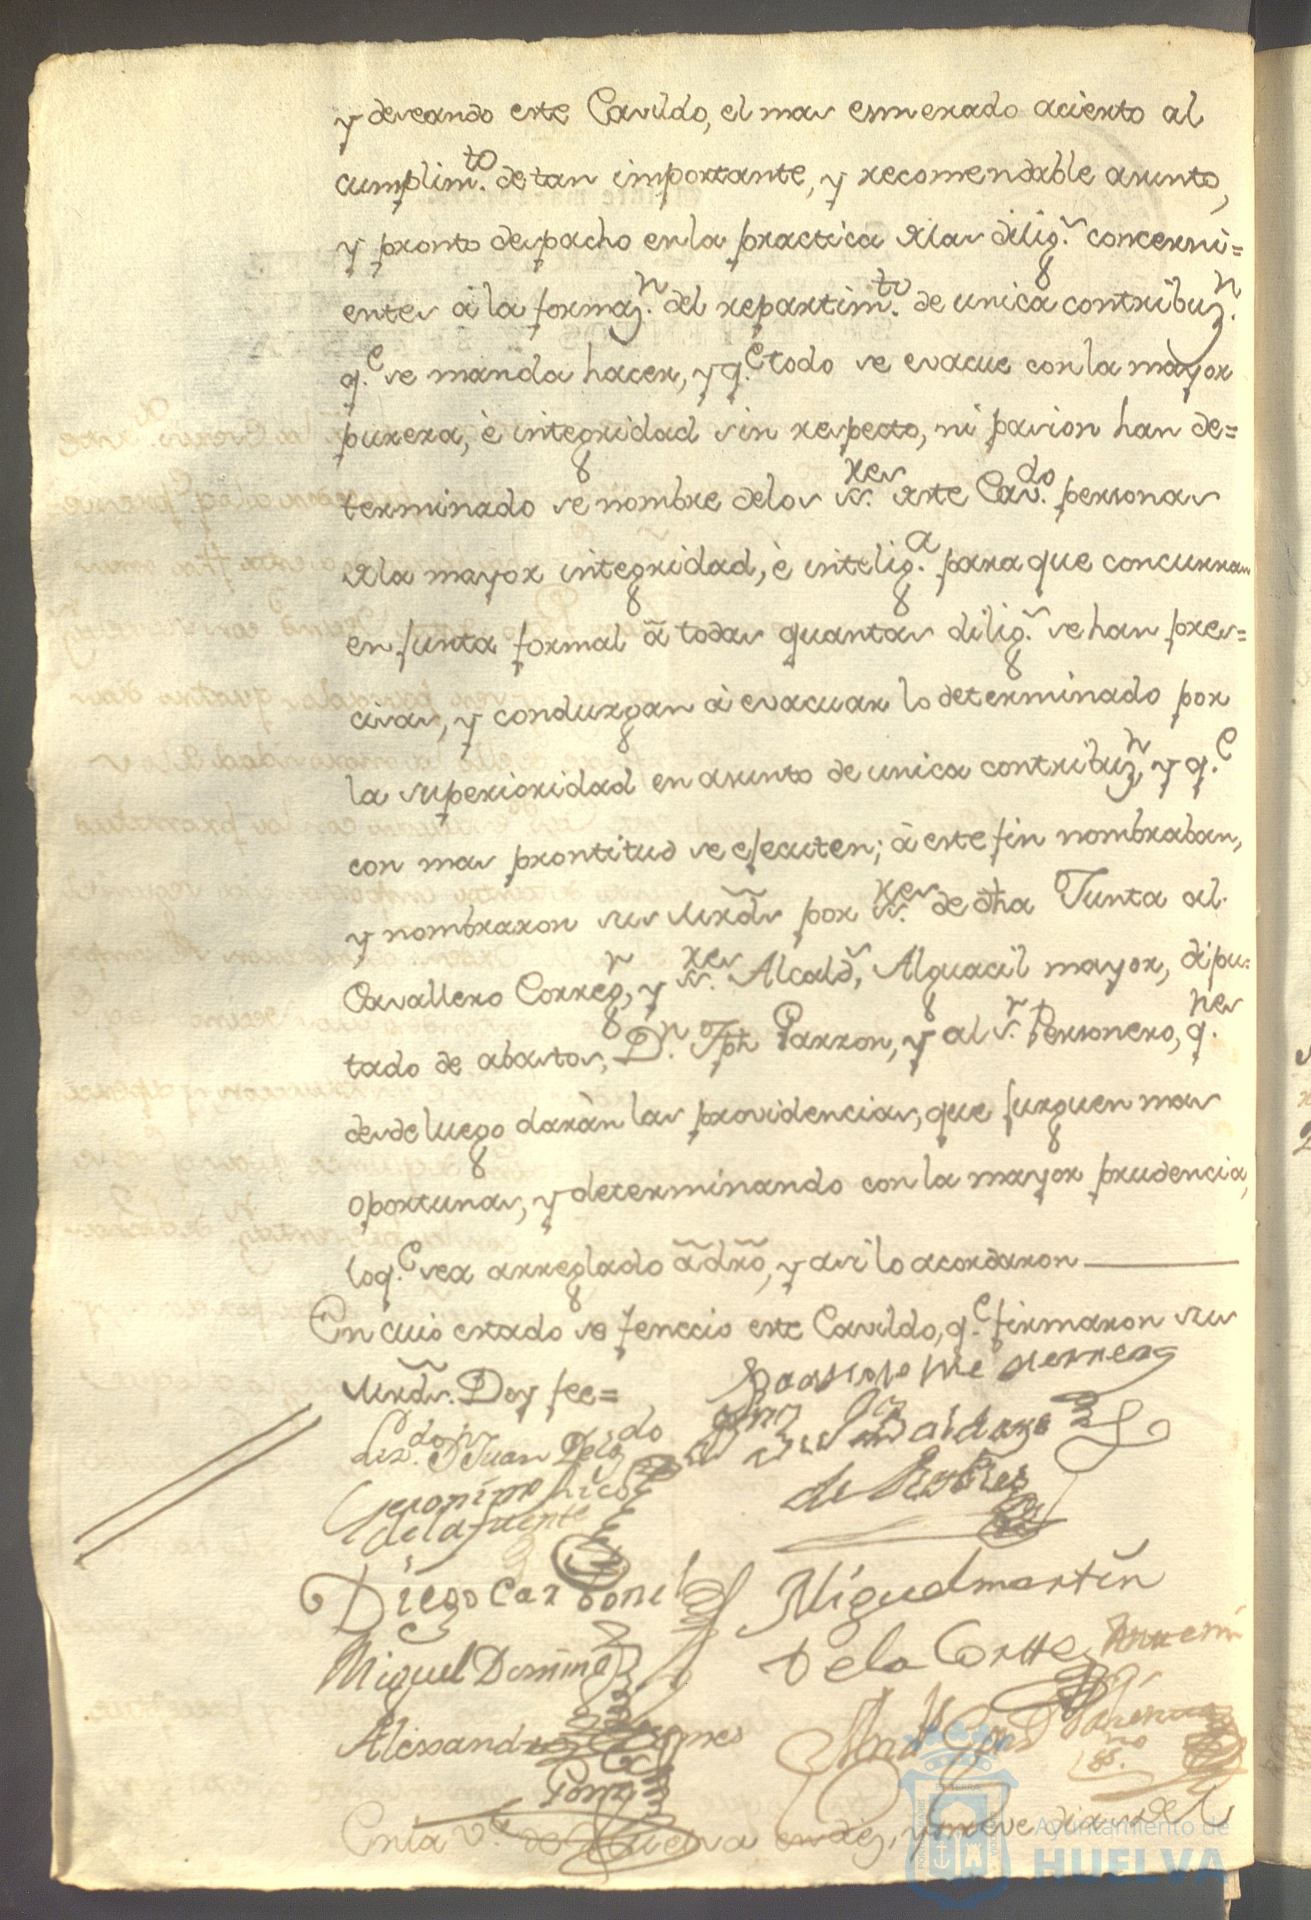 y deseando este Cavildo, el mas esmerado acierto al
cumplim.to de tan importante, y recomendable asunto,
y pronto despacho en la practica de las dilig.s concerni=
entes à la formaz.n del repartim.to de unica contribuz.n
q.e se manda hacer, y q.e todo se evacue con la mayor
pureza, è integridad sin respecto, ni pasion han de=
terminado se nombre de los ss.res de este Cav.do personas
de la mayor integridad, è intelig.a para que concurran
en junta formal à todas quantas dilig.s se han pres=
cisas, y conduzgan à evacuar lo determinado por
la superioridad en asunto de unica contribuz.n y q.e
con mas prontitud se ejecuten; à este fin nombraban,
y nombraron sus Mrds por ss.res de dha Junta al
Cavallero Correg.r, y ss.res Alcalds, Alguacil mayor, dipu=
tado de abastos, D.n Jph Parron, y al s.r Personero, q.nes
desde luego daràn las providencias, que jusguen mas
oportunas, y determinando con la mayor prudencia,
loq.e sea arreglado à dro, y asi lo acordaron
En cuio estado se fenecio este Cavildo, q.e firmaron sus
Mrds. Doy fee=
Bartolome Herrera
Liz.do D.n Juan Delg.do
de Robles
Geronimo Rico
de la fuente
Diego Carbonel
Miguel martin
de la Corte
Miguel Doming
Alessandro
Ponz
En la v.a de Huelva en diez, y nueve dias del
Ayuntamiento de
HUELVA